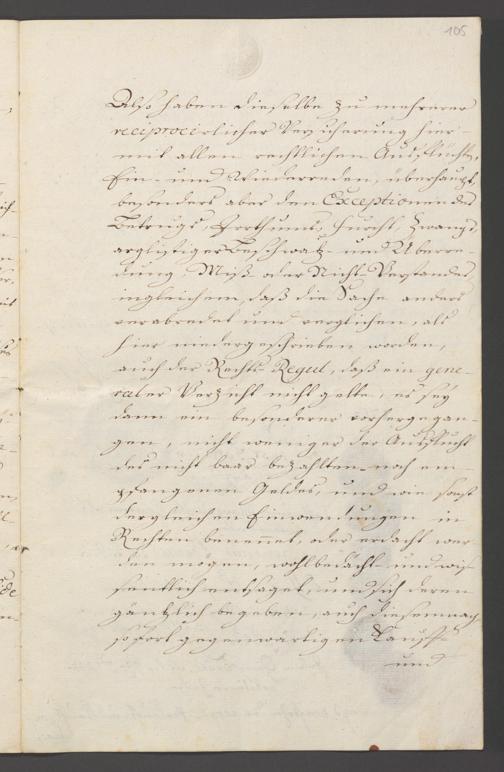 105
Also haben dieselbe zu mehrerer
reciprocirlicher Versicherung hier-
mit allen rechtlichen Ausflüchten,
Ein- und Wiederreden, überhaupt,
besonders aber den Exceptionen des
Betrugs, Irrthums, Furcht, Zwangs,
arglistiger Beschwatz- und Überre-
dung, Miß- oder Nicht-Verstandes
ingleichem, daß die Sache anders
verabredet und verglichen, als
hier niedergeschrieben worden,
auch der Rechts Regul, daß ein gene-
raler Verzicht nicht gelte, es sey
dann ein besonderer vorhergegan-
gen, nicht weniger der Ausflucht
des nicht baar bezahlten noch em-
pfangenen Geldes, und wie sonst
dergleichen Einwendungen in
Rechten benennet, oder erdacht wer-
den mögen, wohlbedächt- und wis-
sentlich entsaget, und sich deren
gäntzlich begeben, auch diesemnach
sofort gegenwärtigen Kauff-
und